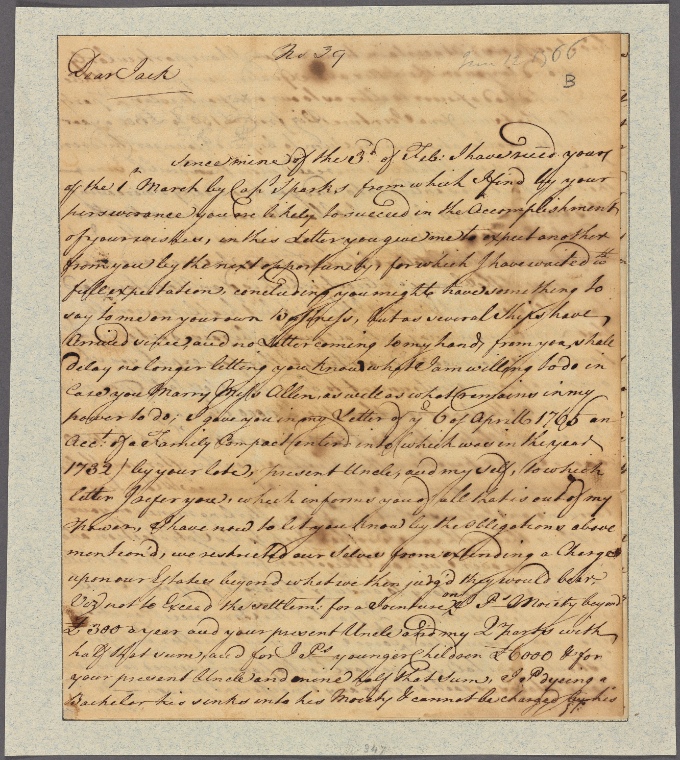 No 39
June 12 1766
B
Dear Jack
Since mine of the 3d of Feb: I have rec̄ed yours
of the 1st March by Capt Sparks from which I find by your
perseverance you are likely to succeed in the Accomplishment
of your wishes, in this Letter you give me to expect another
from you by the next opportunity, for which I have waited wth
full expectation, concluding you might have something to
say to me on your own Bussiness, but as several Ships have
Arrived since, and no Letter coming to my hands from you, shall
delay no longer letting you know what I am willing to do in
Case you Marry Miss Allen, as well as what remains in my
power to do; I gave you in my Letter of ye 6 of Aprill 1765 an
Acct: of a Family Compact enter'd into (which was in the year
1732) by your late, & present Uncle, and my self, to which
letter I refer you, which informs you of all that is out of my
Power, & I have now to let you know by the obligations above
mention'd, we restricted our selves from extending a Charge
upon our Estates beyond what we then judg'd they would bear
Viz: not to Exceed the settlemt: for a Jointure on J Ps Moiety beyond
£800 a year and your present Uncle and my 2 parts with
half that sum, and for J Ps younger Children £6000 & for
your present Uncle and mine half that Sum, J P dyeing a
Bachelor his sinks into his Moiety & cannot be charged by his
347